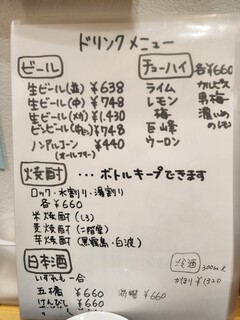 ドリンクメニュー
ビール
生ビール(並) ¥638
生ビール(中) ¥748
生ビール(メガ) ¥1,430
ビンビール(中ビン) ¥748
ノンアルコール ¥440
(オールフリー)
チューハイ 各¥660
ライム
レモン
梅
巨峰
ウーロン
カルピス
男梅
濃いめのレモン
焼酎 … ボトルキープできます
ロック・水割り・湯割り
各¥660
米焼酎(しろ)
麦焼酎(二階堂)
芋焼酎(黒霧島・白波)
日本酒
いずれも一合
五橋 ¥660
けんびし ¥660
¥660
冷酒 300ml
かほり ¥1320